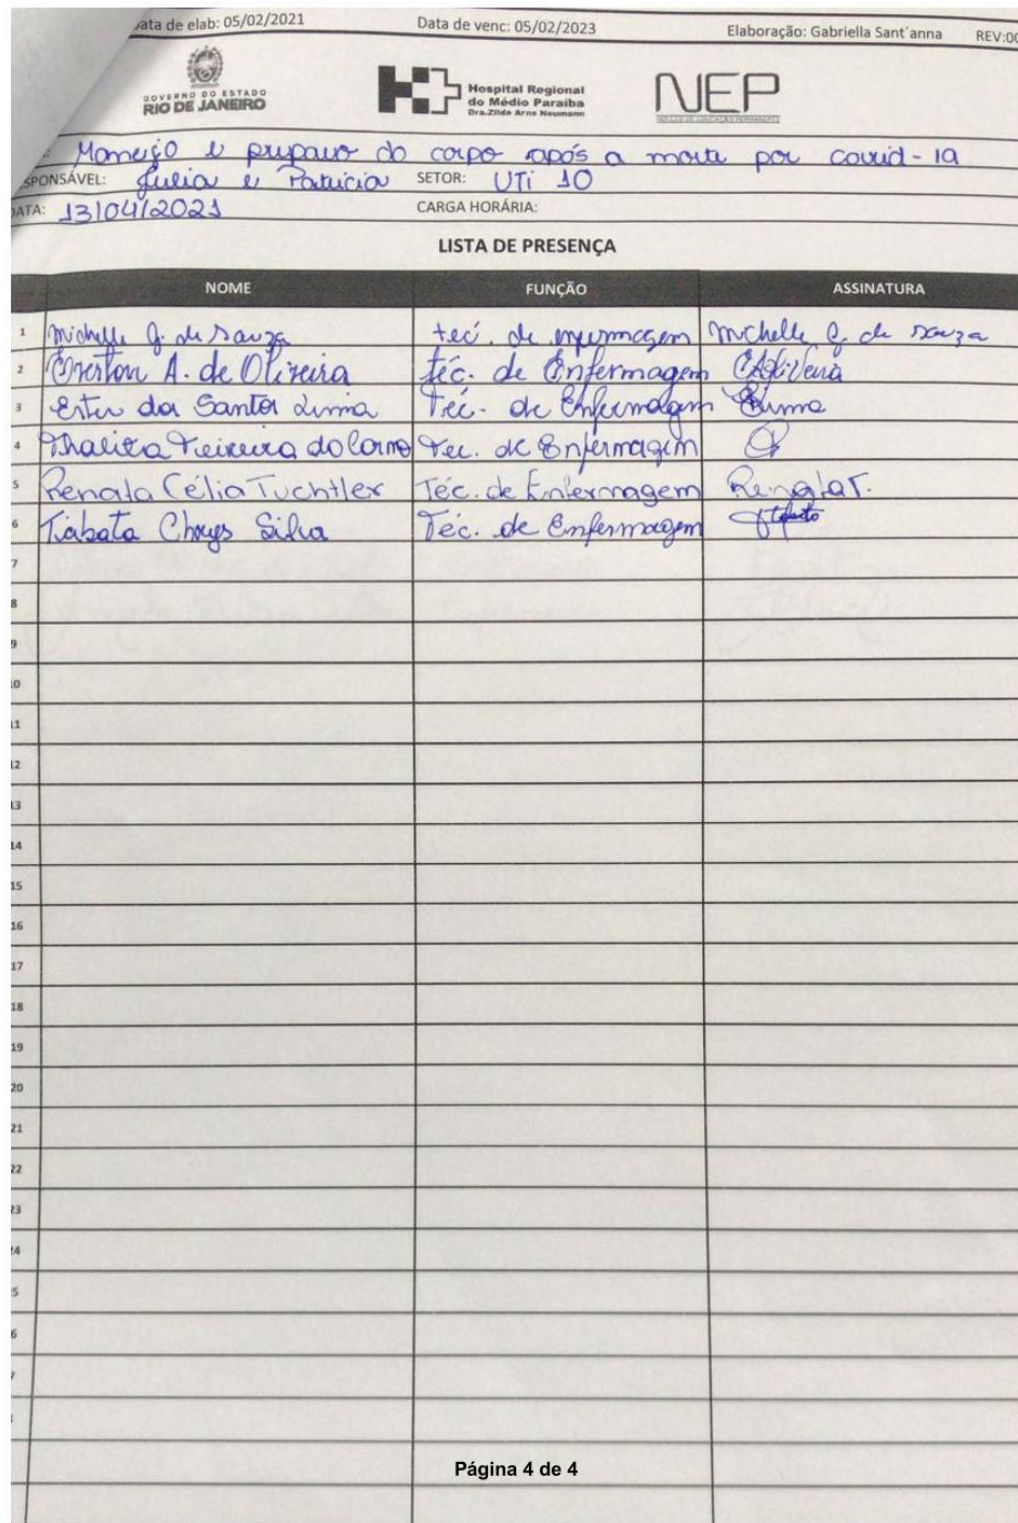 Data de elab: 05/02/2021 Data de venc: 05/02/2023 Elaboração: Gabriella Sant´anna REV:00
GOVERNO DO ESTADO
RIO DE JANEIRO
Hospital Regional
do Médio Paraíba
Dra.Zilda Arns Neumann
NEP
NÚCLEO DE EDUCAÇÃO PERMANENTE
Manejo e preparo do corpo após a morte por covid-19
RESPONSÁVEL: Julia e Patricia SETOR: UTi 10
DATA: 13/04/2021 CARGA HORÁRIA:
LISTA DE PRESENÇA
NOME FUNÇÃO ASSINATURA
1 Michelle G. de Souza tec. de enfermagem Michelle G. de Souza
2 Everton A. de Oliveira téc. de Enfermagem
3 Ester da Santos Lima Tec. de Enfermagem
4 Thalita Teixeira do Carmo Tec. de Enfermagem
5 Renata Célia Tuchtler Téc. de Enfermagem Renata T.
6 Tabata Silva Téc. de Enfermagem
7
8
9
10
11
12
13
14
15
16
17
18
19
20
21
22
23
24
5
6
Página 4 de 4